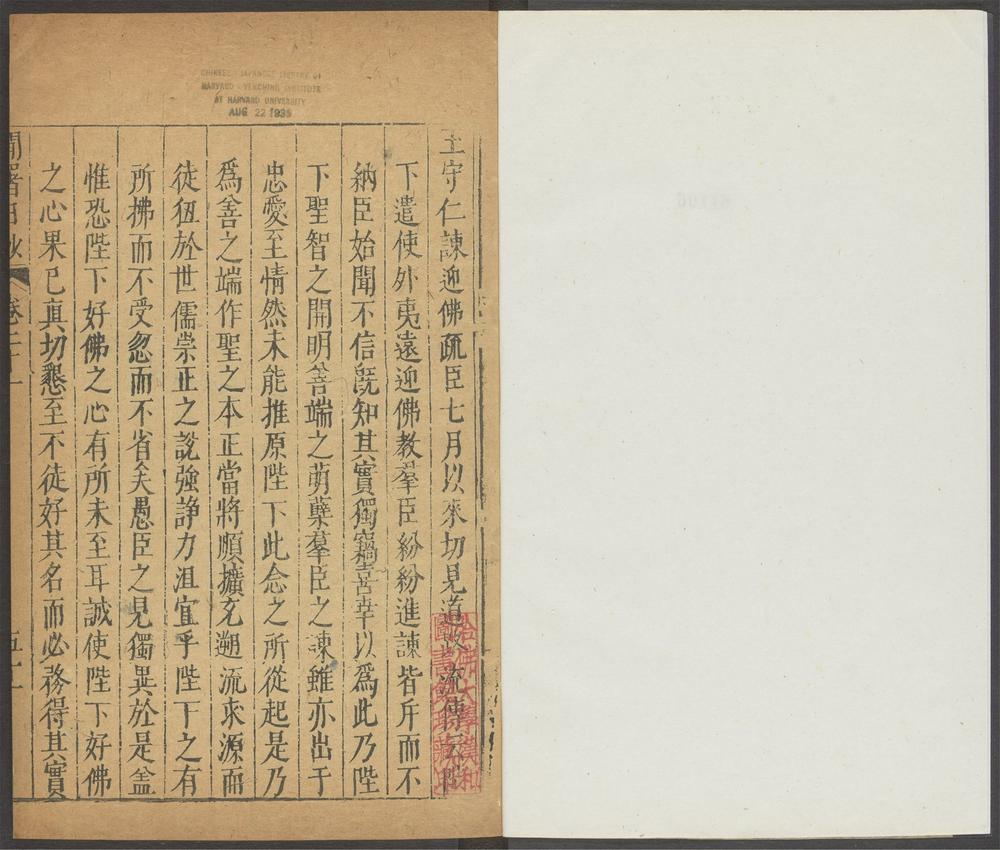 CHINESE - JAPANESE LIBRARY OF
HARVARD - YENCHING INSTITUTE
AT HARVARD UNIVERSITY
AUG 22 1935
王守仁諫迎佛疏臣七月以來切見道路流傳云陛
下遣使外夷遠迎佛教羣臣紛紛進諫皆斥而不
納臣始聞不信既知其實獨竊喜幸以爲此乃陛
下聖智之開明善端之萌蘖羣臣之諫雖亦出于
忠愛至情然未能推原陛下此念之所從起是乃
爲善之端作聖之本正當將順擴充遡流求源而
徒狃於世儒崇正之說強諍力沮宜乎陛下之有
所拂而不受忽而不省矣愚臣之見獨異於是盖
惟恐陛下好佛之心有所未至耳誠使陛下好佛
之心果已真切懇至不徒好其名而必務得其實
卷二十一
五十一
哈佛大學漢和圖書館珍藏印